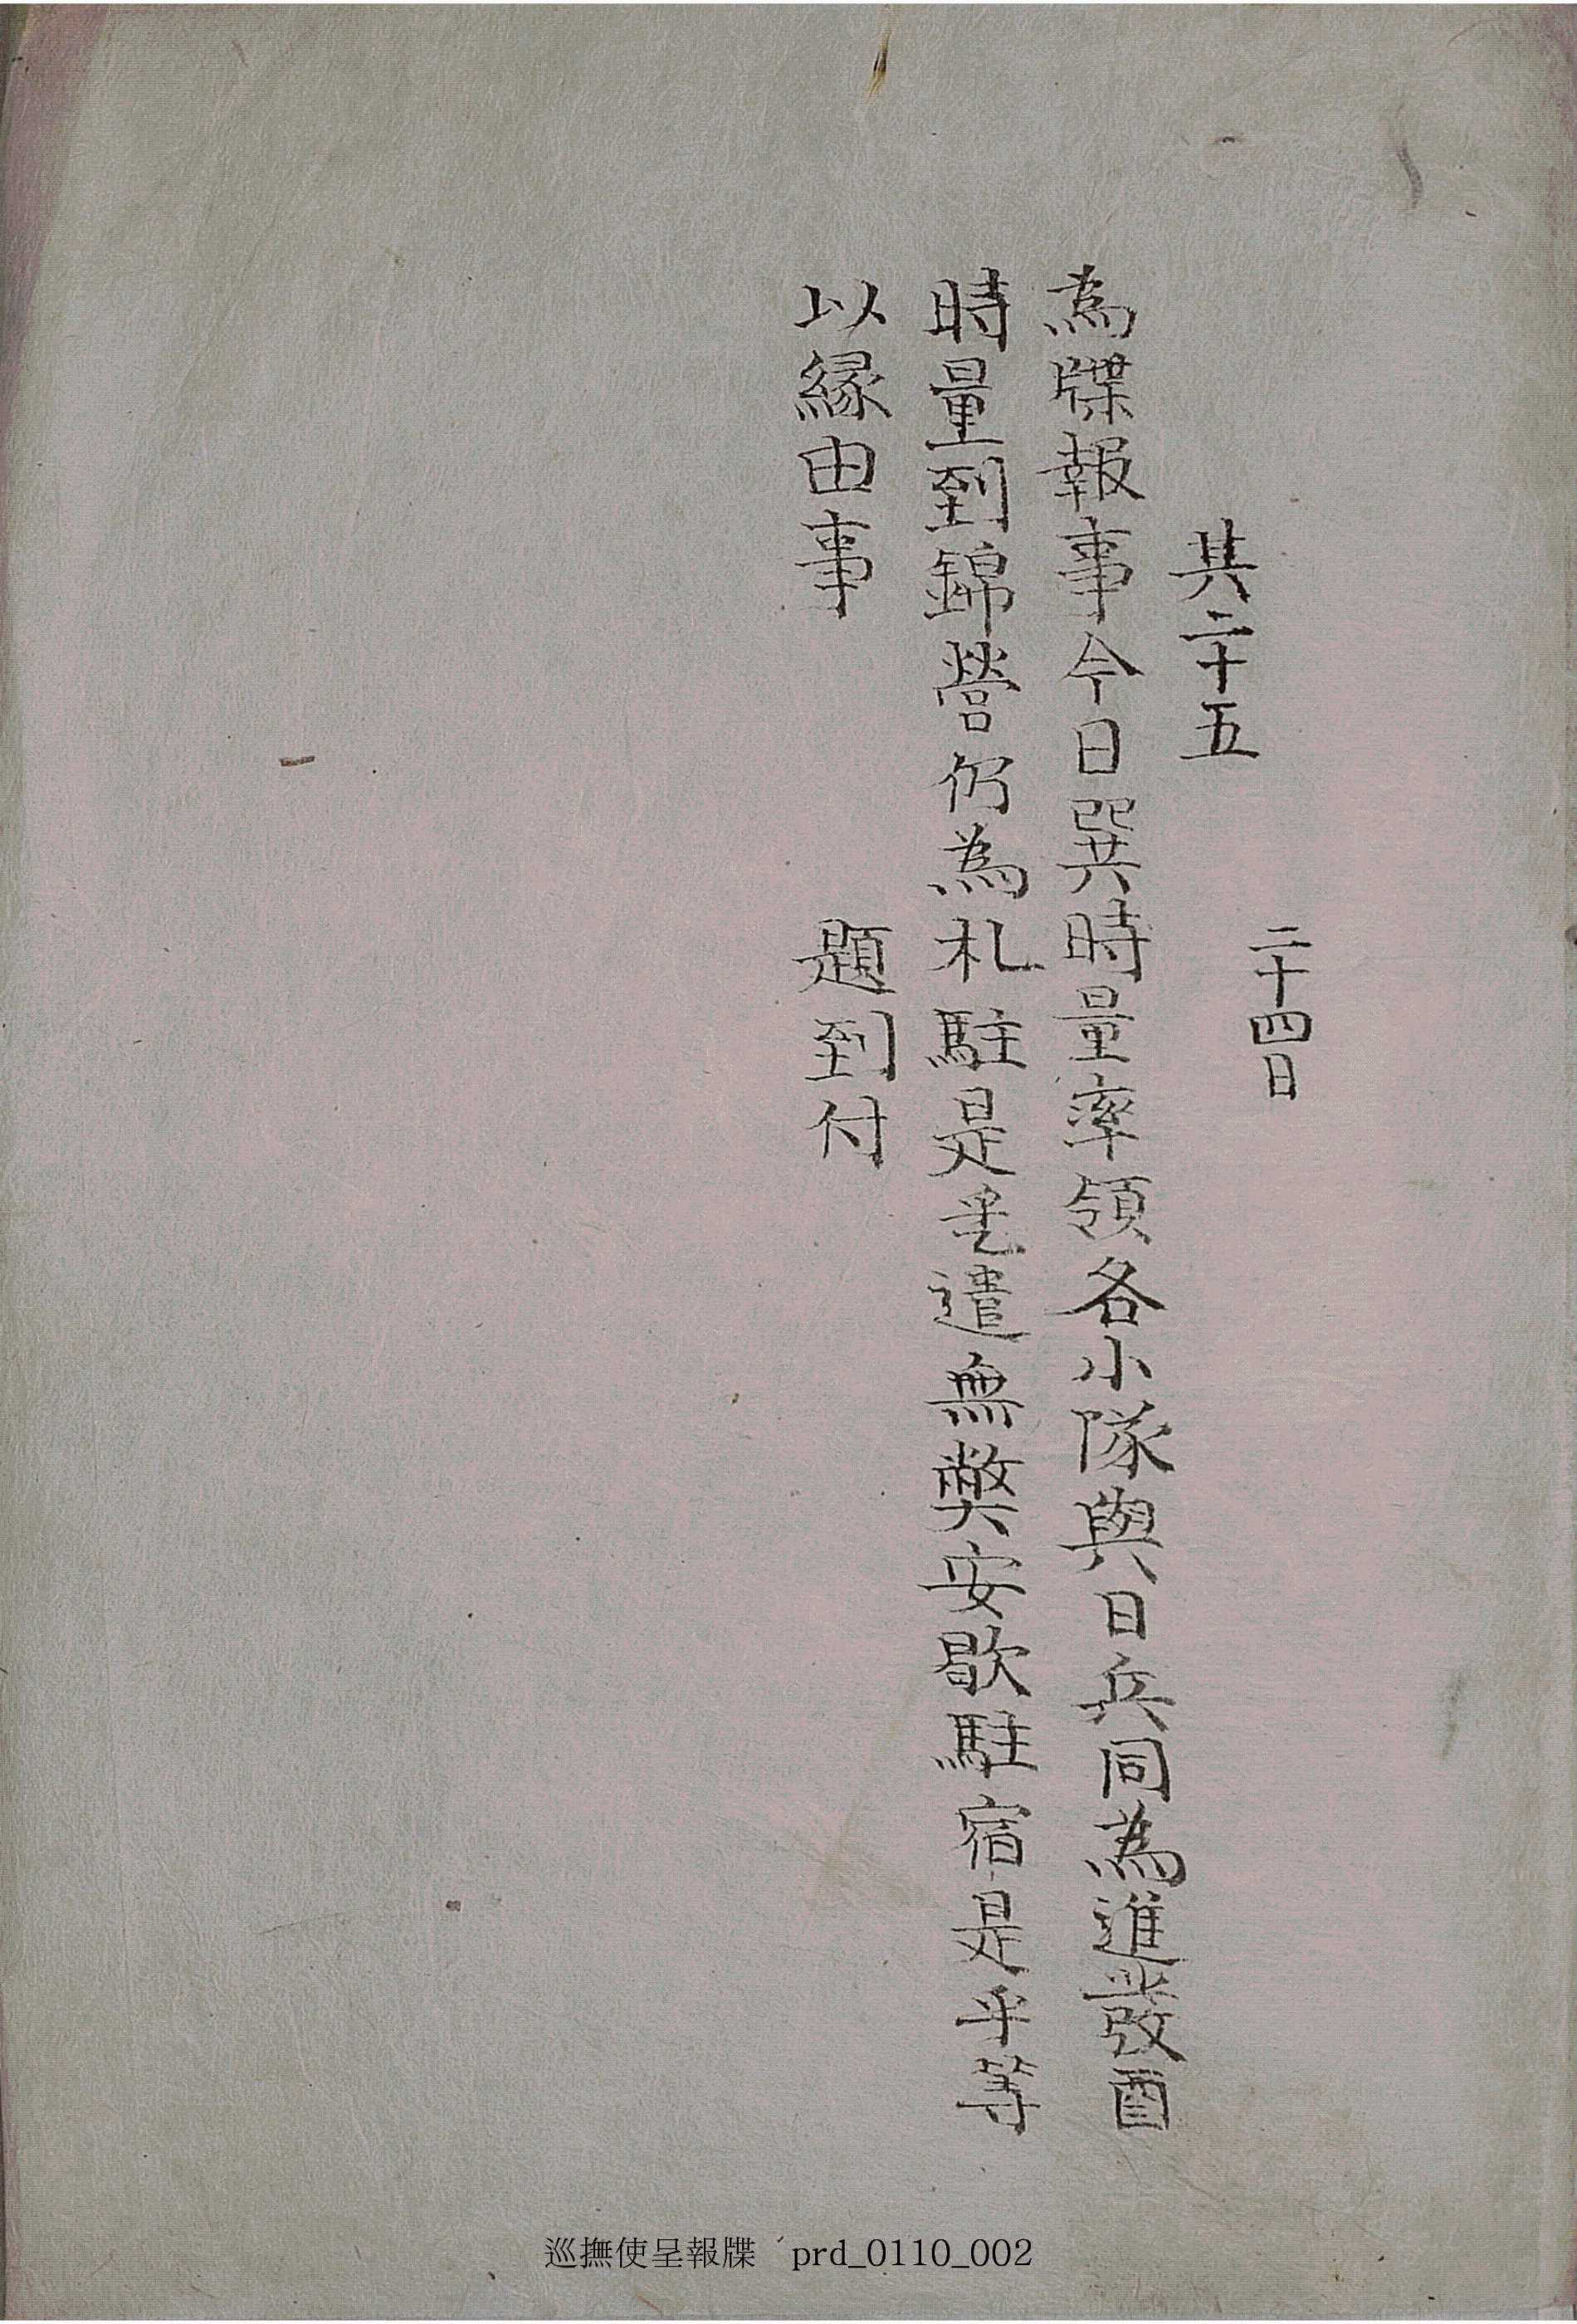 二十四日
其二十五
為牒報事今日巽時量率領各小隊與日兵同為進發酉
時量到錦營仍為札駐是乎遣無弊安歇駐宿是乎等
以緣由事 題到付
巡撫使呈報牒 prd_0110_002